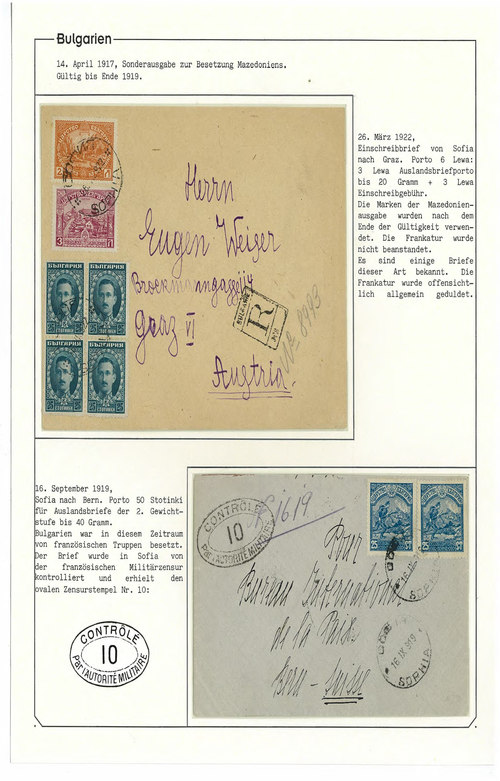 Bulgarien
14. April 1917, Sonderausgabe zur Besetzung Mazedoniens.
Gültig bis Ende 1919.
26. März 1922,
Einschreibbrief von Sofia
nach Graz. Porto 6 Lewa:
3 Lewa Auslandsbriefporto
bis 20 Gramm + 3 Lewa
Einschreibgebühr.
Die Marken der Mazedonien-
ausgabe wurden nach dem
Ende der Gültigkeit verwen-
det. Die Frankatur wurde
nicht beanstandet.
Es sind einige Briefe
dieser Art bekannt. Die
Frankatur wurde offensicht-
lich allgemein geduldet.
Herrn
Eugen Weiger
Graz VI
Austria
R
No 8993
БЪЛГАРИЯ
БЪЛГАРИЯ
25 СТОТИНКИ 25
25 СТОТИНКИ 25
БЪЛГАРИЯ
БЪЛГАРИЯ
25 СТОТИНКИ 25
25 СТОТИНКИ 25
16. September 1919,
Sofia nach Bern. Porto 50 Stotinki
für Auslandsbriefe der 2. Gewicht-
stufe bis 40 Gramm.
Bulgarien war in diesem Zeitraum
von französischen Truppen besetzt.
Der Brief wurde in Sofia von
der französischen Militärzensur
kontrolliert und erhielt den
ovalen Zensurstempel Nr. 10:
CONTRÔLE
10
Par l'AUTORITÉ MILITAIRE
CONTRÔLE
10
Par l'AUTORITÉ MILITAIRE
Pour
Bureau International
de la Paix
Bern - Suisse
16 IX 919
SOPHIA